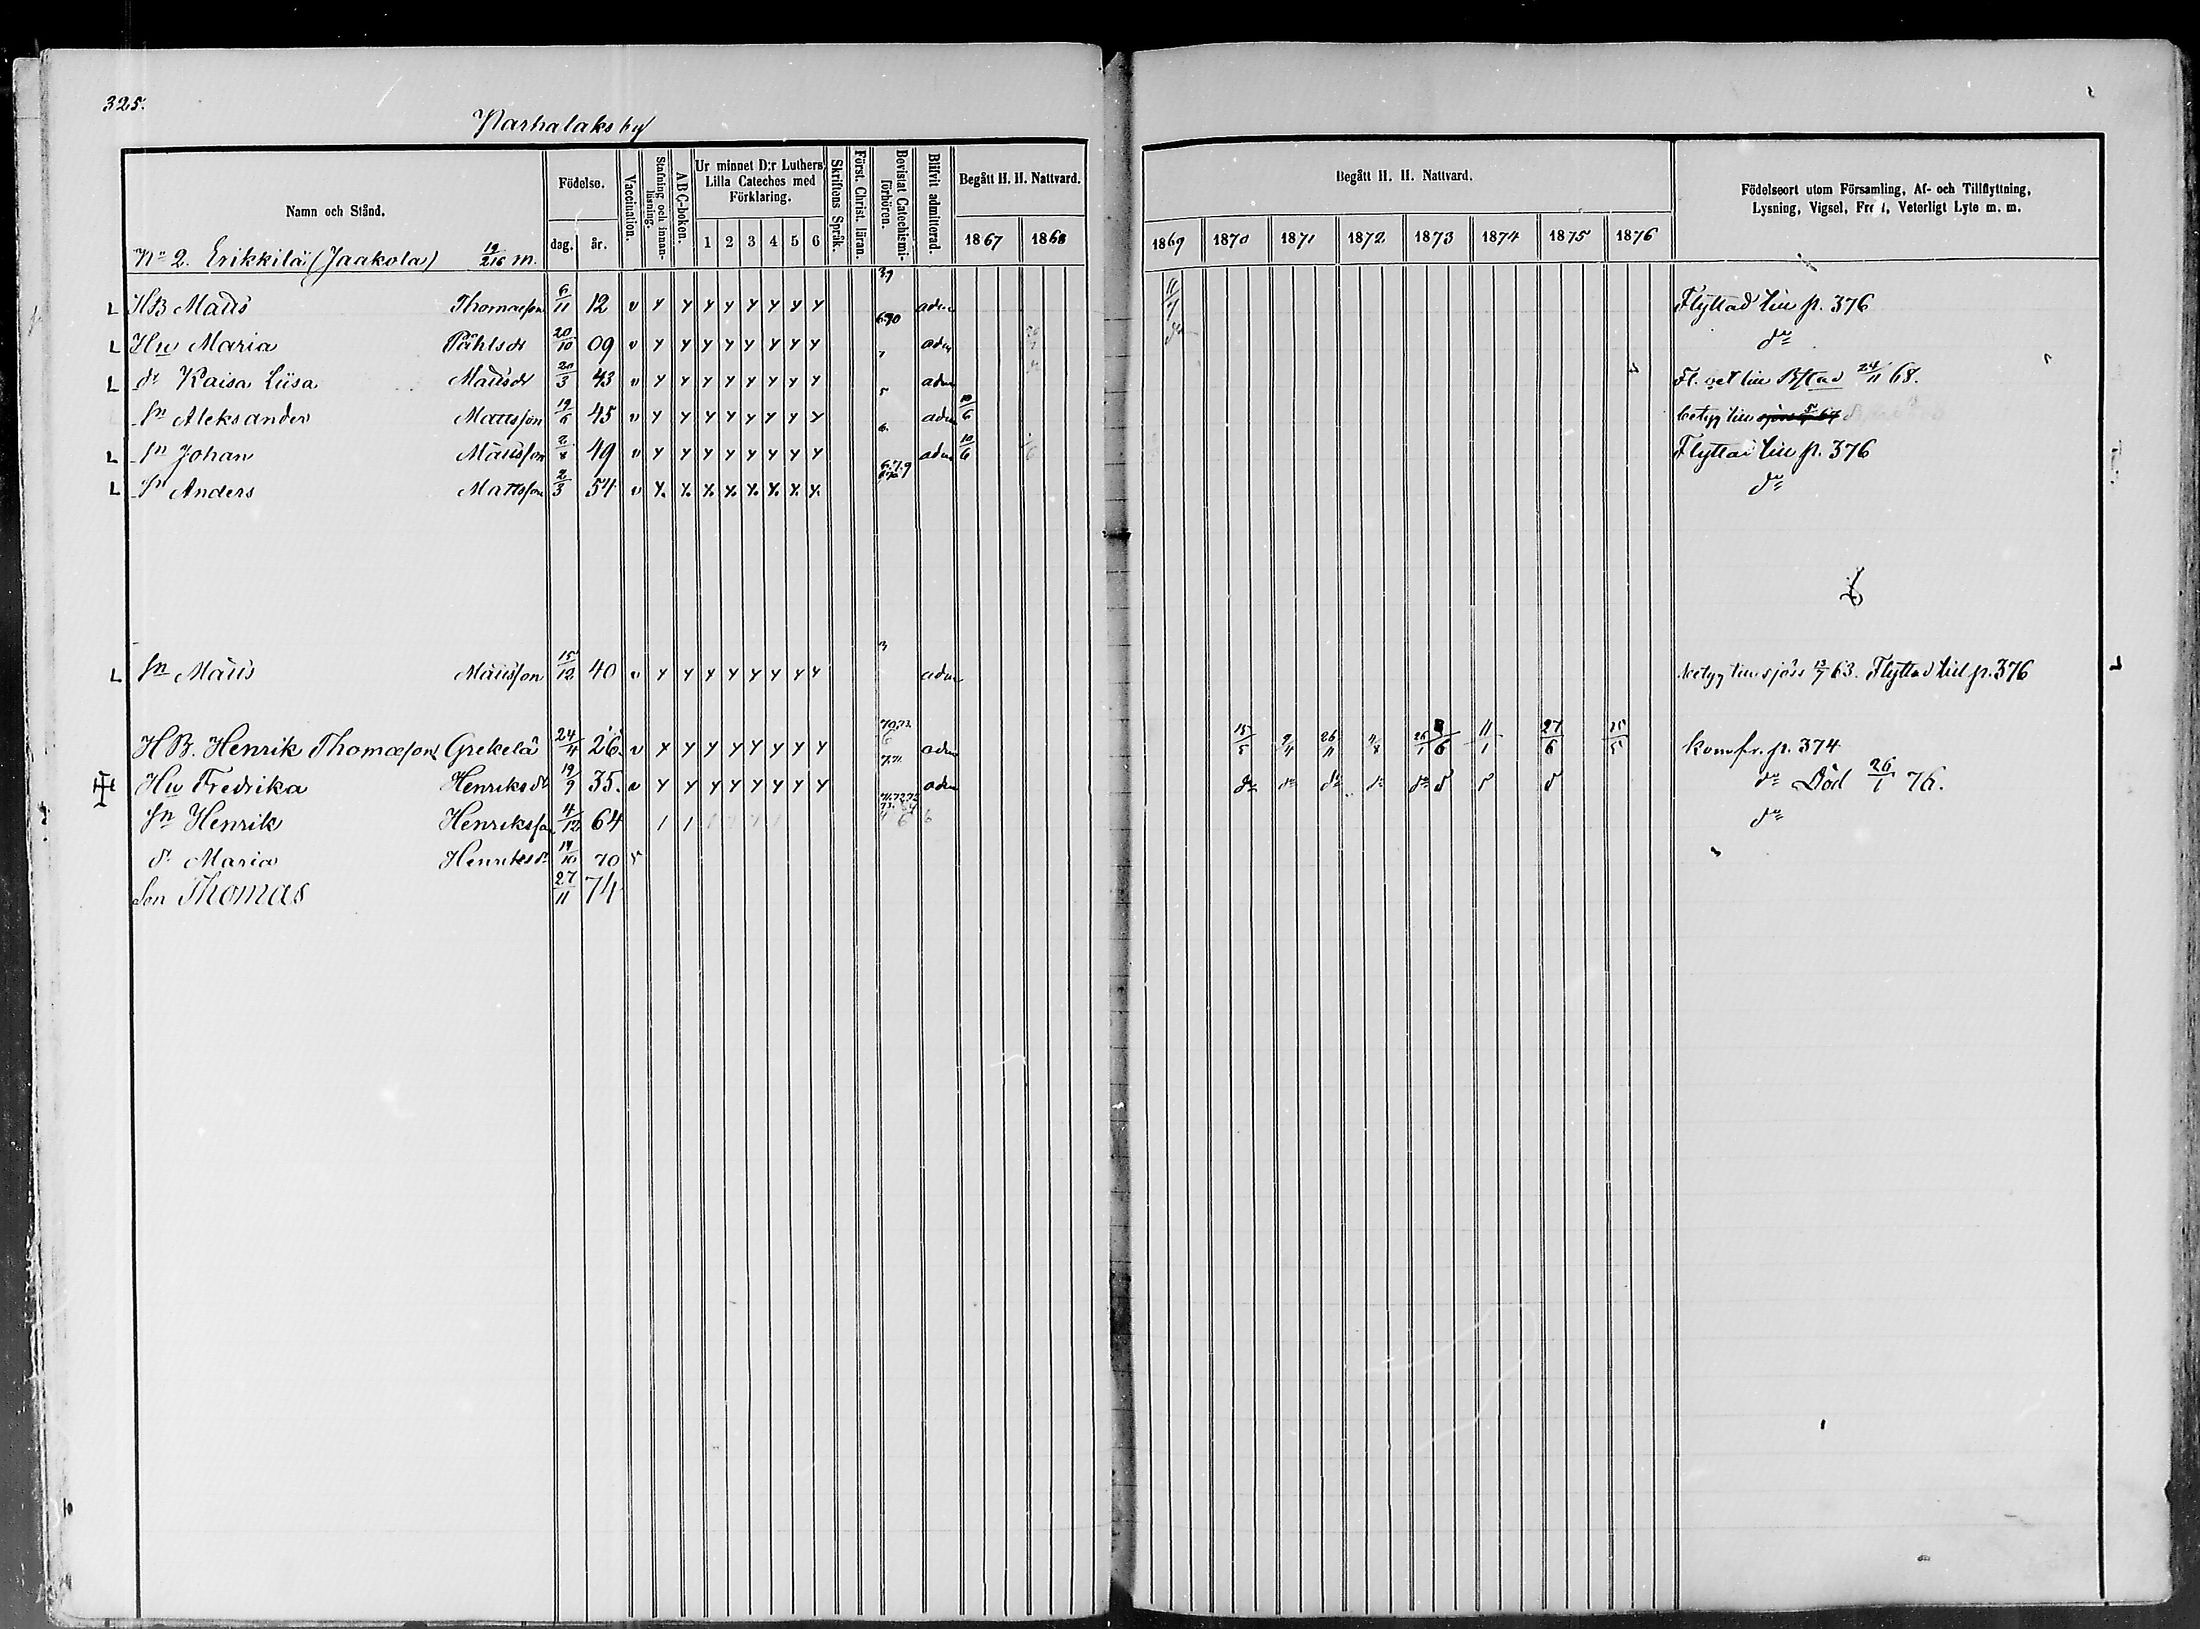 325.
Karhalaks by
Namn och Stånd.
Födelse.
dag. år.
Vaccination.
Stafning och innan-läsning.
ABC-boken.
Ur minnet D:r Luthers Lilla Cateches med Förklaring.
1 2 3 4 5 6
Skriftens Språk.
Först. Christ. läran.
Bevistat Catechismi-förhören.
Blifvit admitterad.
Begått H. H. Nattvard.
1867 1868
Begått H. H. Nattvard.
1869 1870 1871 1872 1873 1874 1875 1876
Födelseort utom Församling, Af- och Tillflyttning,
Lysning, Vigsel, Frejd, Veterligt Lyte m. m.
No 2. Erikkilä (Jaakola) 19/216 m.
L HB Matts Thomasson 6/11 12 v y y y y y y y y adm 11/7 Flyttad till p. 376
L Hu Maria Påhlsdr 20/10 09 v y y y y y y y y adm do do
L dr Kaisa Liisa Mattsdr 20/3 43 v y y y y y y y y 5 adm Fl. bet till Bstad 24/11 68.
sn Aleksander Mattsson 19/6 45 v y y y y y y y y 6. adm 10/6 betyg till
L sn Johan Mattsson 2/8 49 v y y y y y y y y adm 10/6 Flyttad till p. 376
L sn Anders Mattsson 2/3 54 v y. y. y. y. y. y. y. y. 6.7.9 do
L sn Matts Mattsson 15/12 40 v y y y y y y y y adm betyg till sjöss 13/7 63. Flyttad till p. 376
HB. Henrik Thomasson Grekelä 24/4 26. v y y y y y y y y adm 15/5 9/4 26/11 4/8 26/1 8/6 11/1 27/6 25/5 kom fr. p. 374
Hu Fredrika Henriksdr 19/9 35. v y y y y y y y y adm do do do do do d d d do Död 26/1 76.
sn Henrik Henriksson 4/12 64 1 1 do
dr Maria Henriksdr 14/10 70 v
Son Thomas 27/11 74